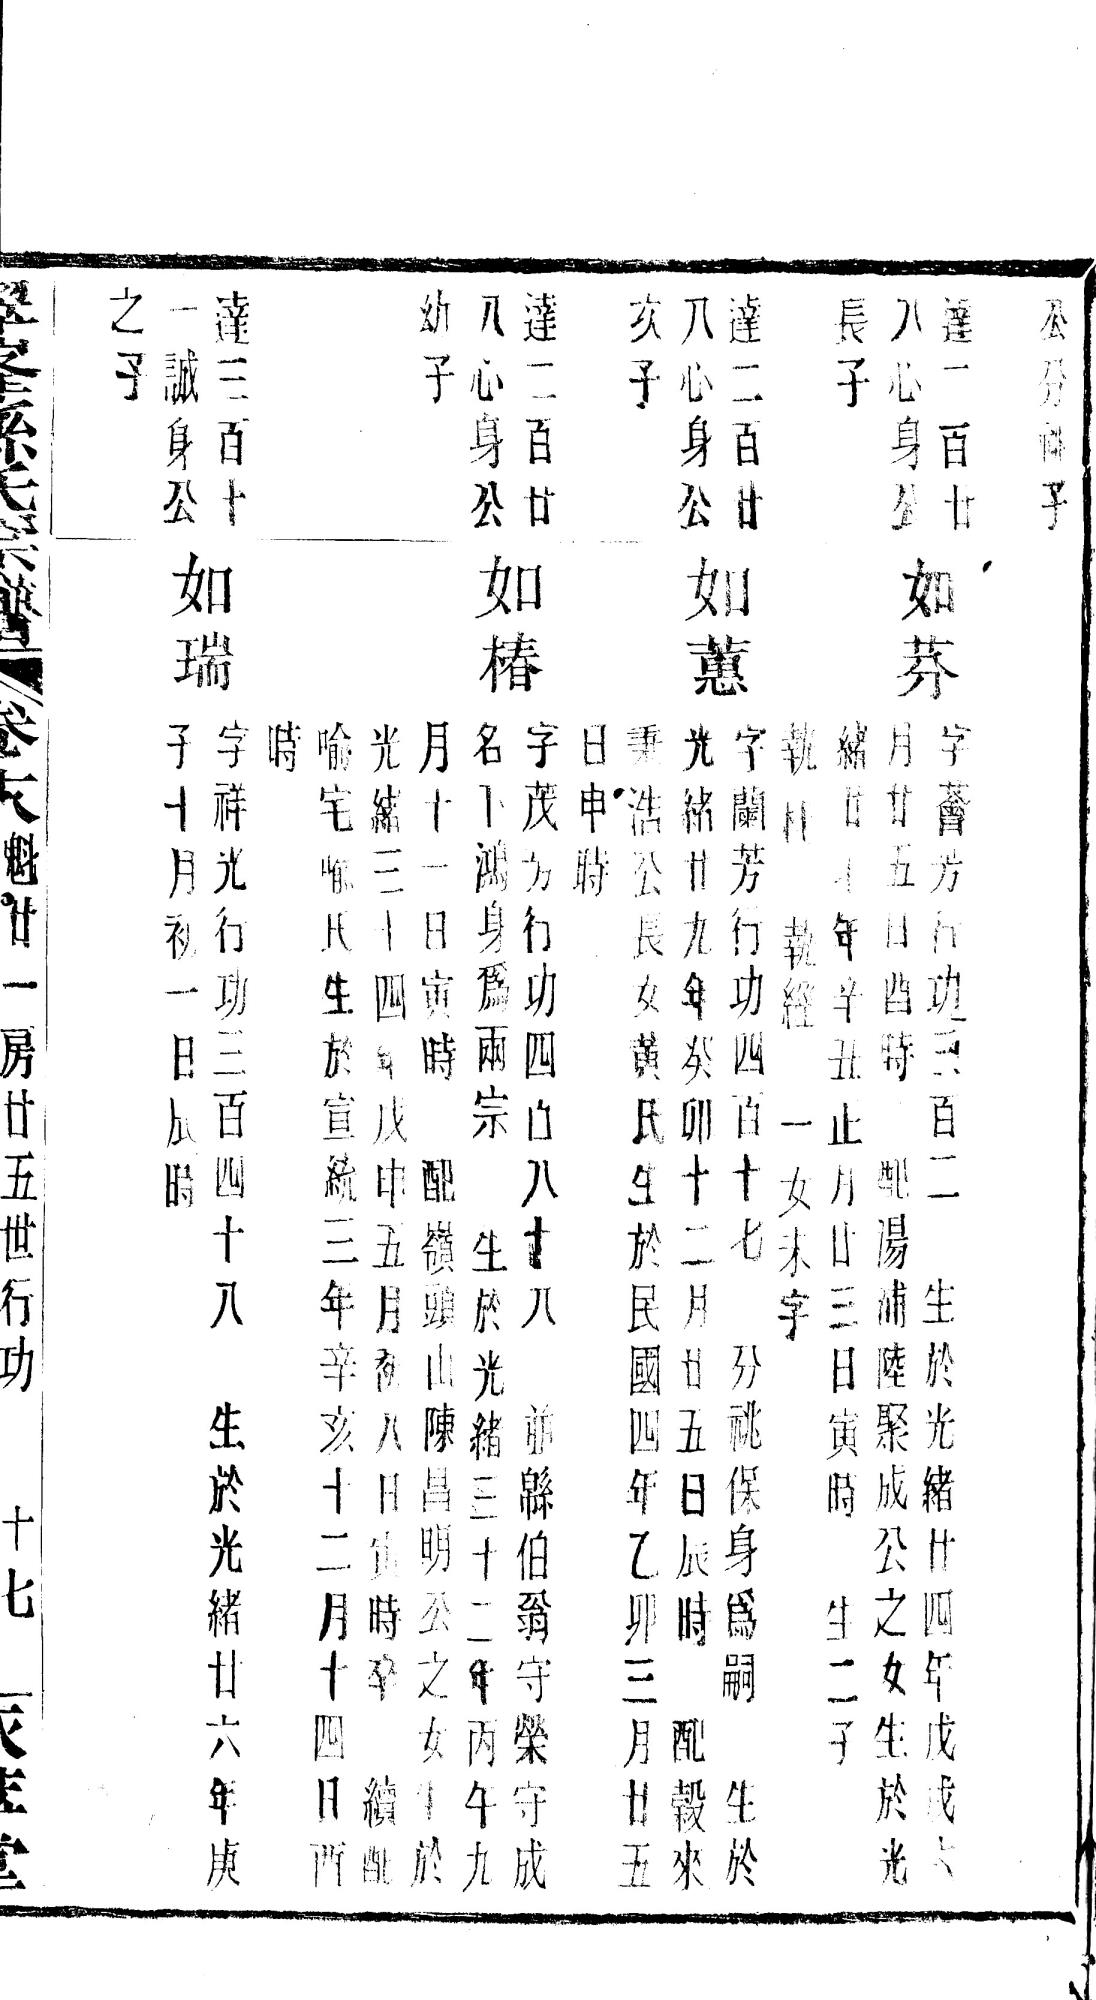 公分祧子
達二百廿
八心身公
長子
如芬
字薈芳行功三百二 生於光緒廿四年戊戌六
月廿五日酉時 配湯浦陸聚成公之女生於光
緒廿七年辛丑正月廿三日寅時 生二子
執中 執經 一女未字
達二百廿
八心身公
亥子
如蕙
字蘭芳行功四百十七 分祧保身爲嗣 生於
光緒廿九年癸卯十二月廿五日辰時 配穀來
秉浩公長女黃氏生於民國四年乙卯三月廿五
日申時
達二百廿
八心身公
幼子
如椿
字茂芳行功四百八十八 前繇伯翁守榮守成
名下鴻身爲兩宗 生於光緒三十二年丙午九
月十一日寅時 配嶺頭山陳昌明公之女生於
光緒三十四年戊申五月初八日寅時卒 續配
喻宅喻氏生於宣統三年辛亥十二月十四日酉
時
達三百十
一誠身公
之子
如瑞
字祥光行功三百四十八 生於光緒廿六年庚
子十月初一日辰時
孫氏宗譜 卷 魁廿一房廿五世行功 十七 堂